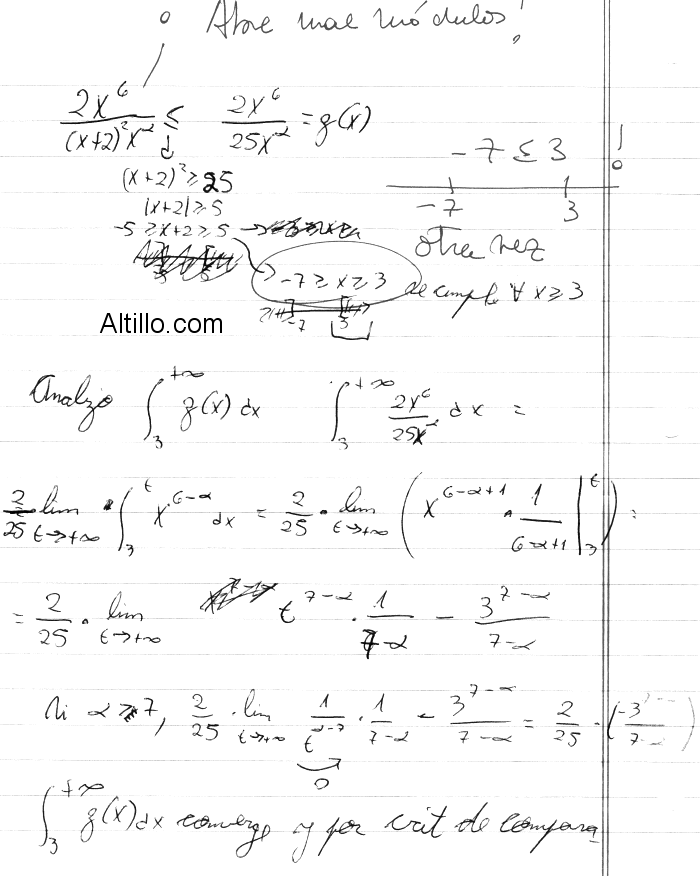 ° Abre mal módulos!
2x^6 / (x+2)^2 x^α ≤ 2x^6 / 25x^α = g(x)
(x+2)^2 ≥ 25
|x+2| ≥ 5
-5 ≥ x+2 ≥ 5 →
-7 ≥ x ≥ 3
-7 3
-7 ≤ 3 !
-7 3
otra vez
se cumple ∀ x ≥ 3
Altillo.com
Analizo ∫_3^{+∞} g(x) dx ∫_3^{+∞} 2x^6 / 25x^α dx =
2/25 lim_{t→+∞} · ∫_3^t x^{6-α} dx = 2/25 · lim_{t→+∞} ( x^{6-α+1} · 1/(6-α+1) |_3^t ) =
= 2/25 · lim_{t→+∞} t^{7-α} · 1/(7-α) - 3^{7-α}/(7-α)
Si α > 7, 2/25 · lim_{t→+∞} 1/t^{α-7} · 1/(7-α) - 3^{7-α}/(7-α) = 2/25 · (-3^{7-α}/(7-α))
0
∫_3^{+∞} g(x) dx converge y por crit de compara